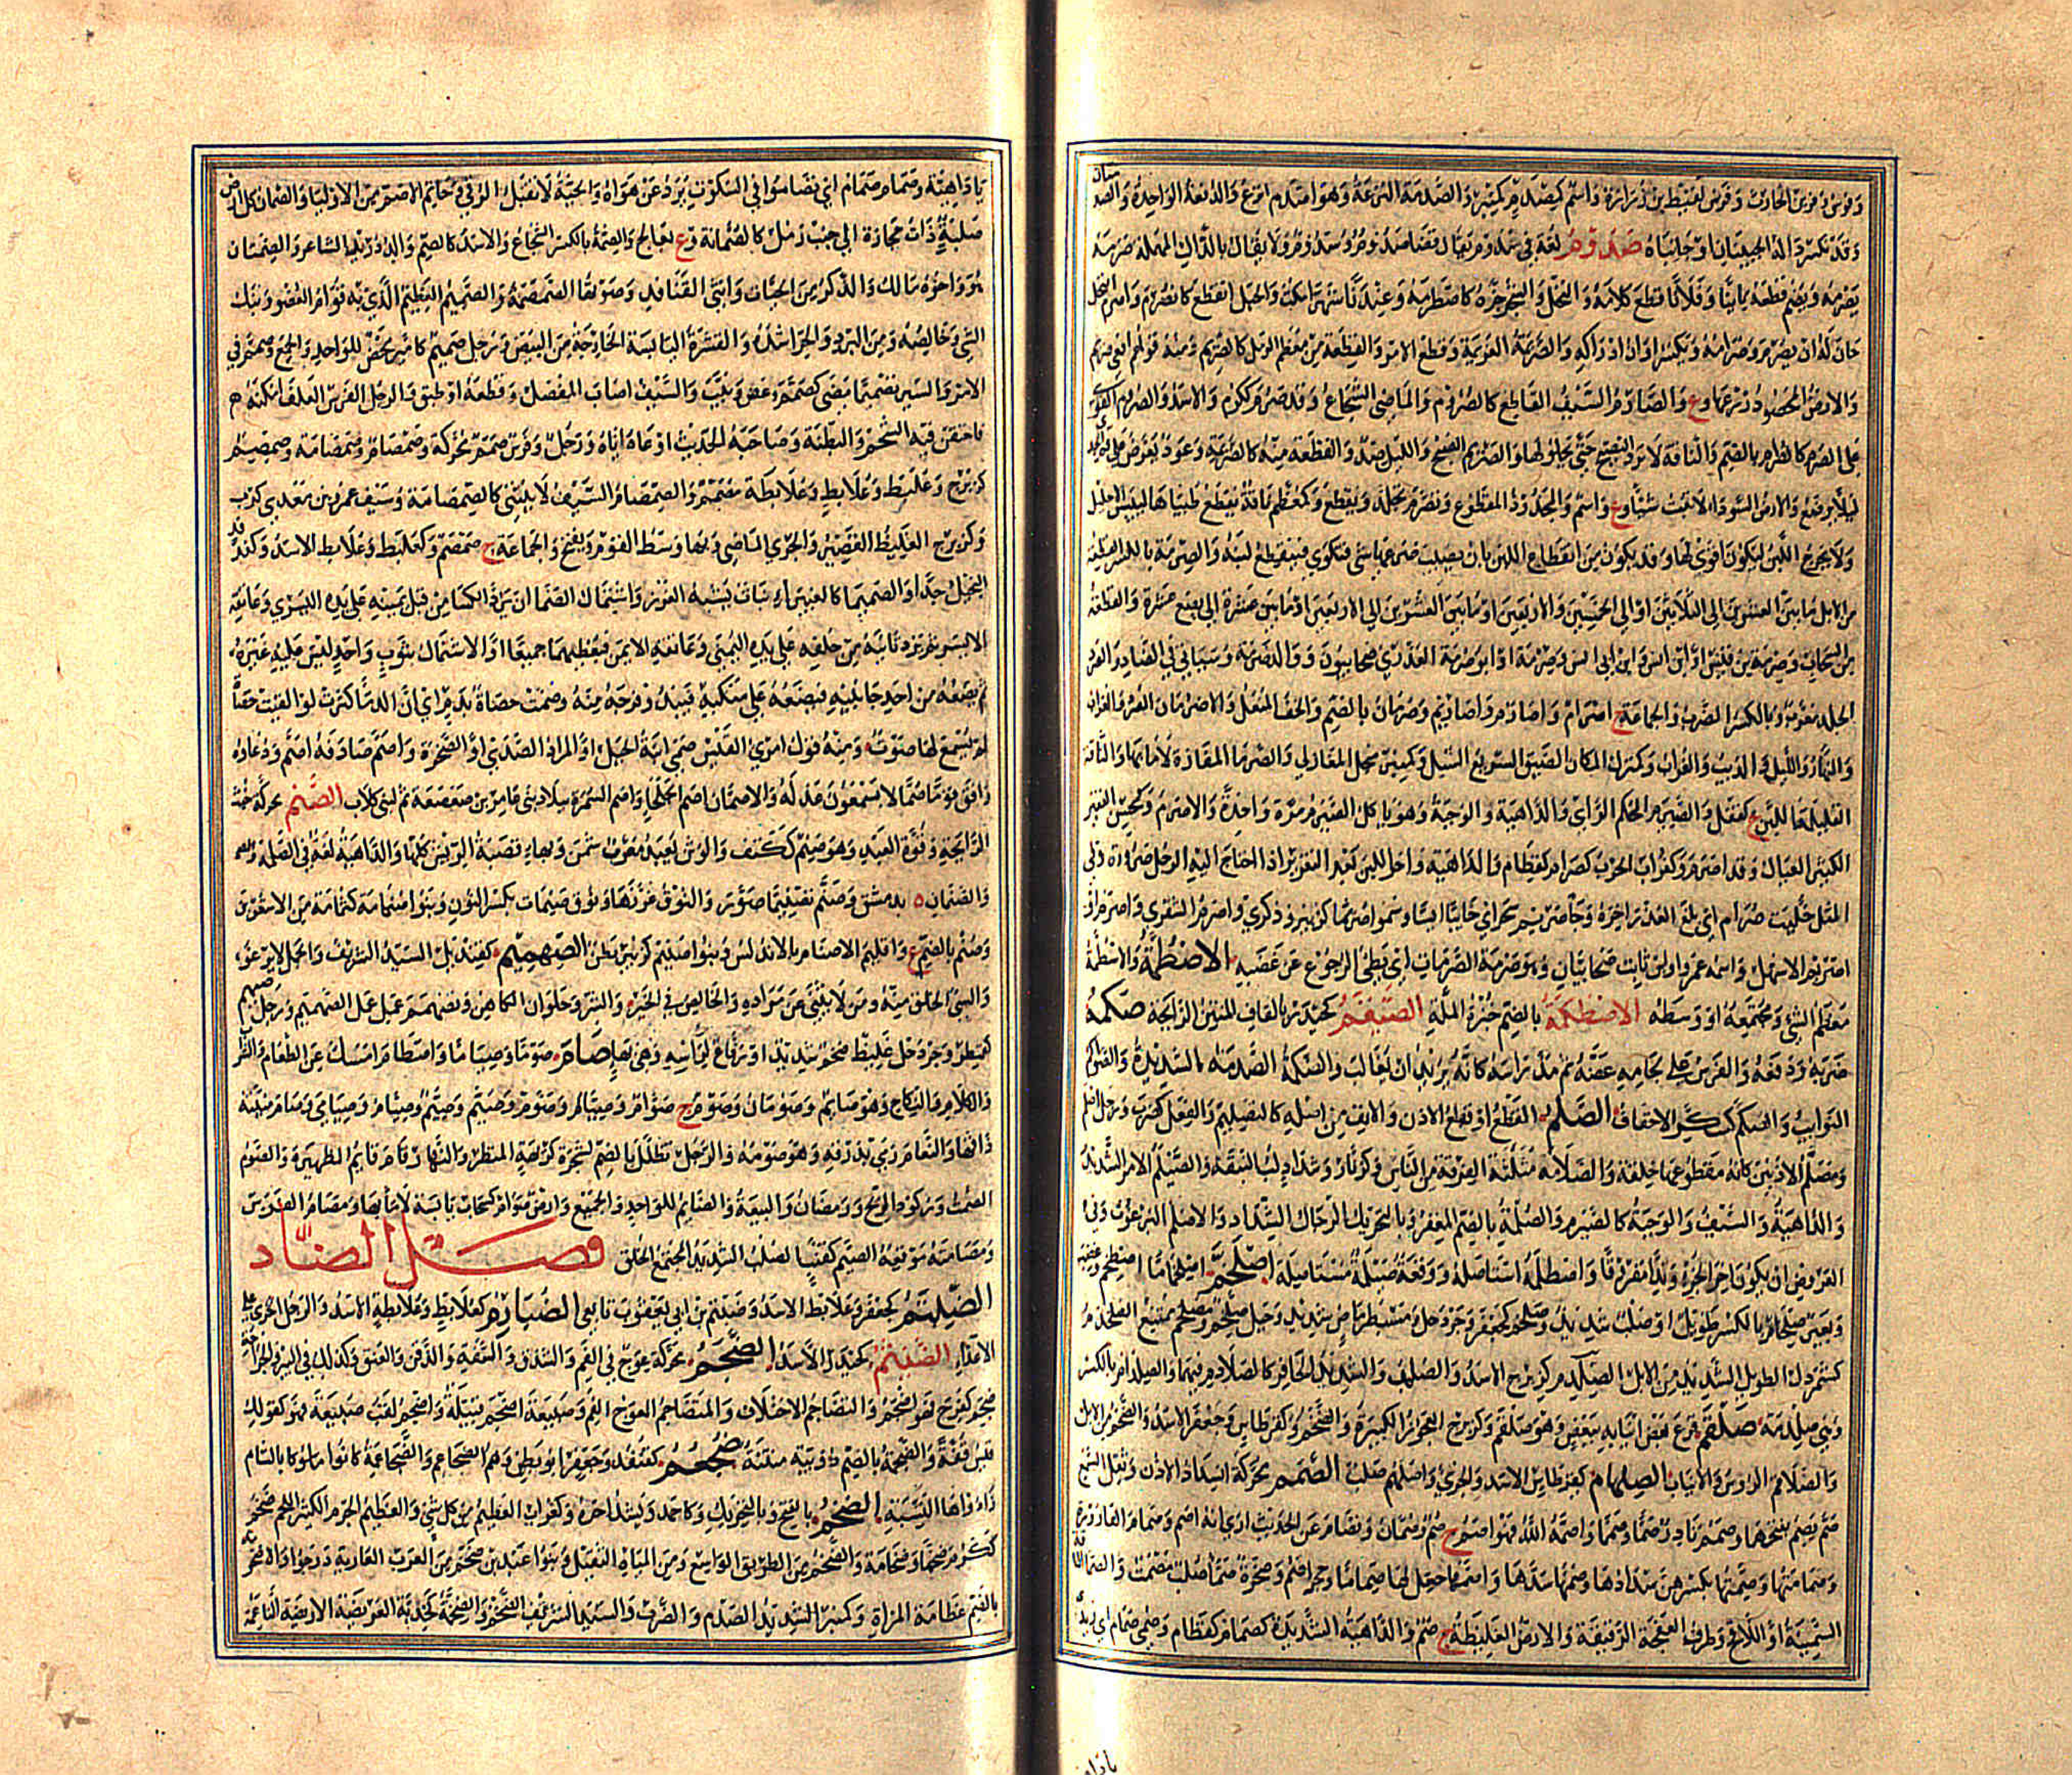 وفرس وفرس الحارث وفرس لقيط بن زرارة واسم كمصدم كمنبر والصدمة النزعة وهو اصدم انزع والدفعة الواحدة والصدمتان
وقد تكسر داله الجبينان او جانباه صذوم لغة في سدوم يقال قضا سذوم وسذوم ولا يقال بالدال المهملة صرمه
يصرمه ويضم قطعه بائنا وفلانا قطع كلامه والنخل والشجر جزه كاصطرمه وعندنا شهرا مكث والحبل انقطع كانصرم واصرم النخل
حان له ان يصرم وصرامه ويكسر اوان ادراكه والصريمة العزيمة وقطع الامر والقطعة من معظم الرمل كالصريم ومنه قولهم افعى صريم
والارض المحصود زرعها وع والصارم السيف القاطع كالصروم والماضي الشجاع وقد صرم ككرم والاسد والصروم القوي
على الصرم كالصرام بالضم والناقة لا ترد النضيح حتى يخلو لها والصريم الصبح والليل ضد والقطعة منه كالصريمة وعود يعرض على فم الجدي
ليلا يرضع والارض السوداء لا تنبت شيئا وع واسم والمجدود المقطوع وتصرم تجلد وتقطع وكمعظم ناقة يقطع طبياها لييبس الاحليل
ولا يخرج اللبن ليكون اقوى لها وقد يكون من انقطاع اللبن بان يصيب ضرعها شيء فيكوى فينقطع لبنه والصرمة بالكسر القطعة
من الابل ما بين العشرين الى الثلاثين او الى الخمسين والاربعين او ما بين العشرين الى الاربعين او ما بين عشرة الى بضع عشرة والقطعة
من السحاب وصرمة بن قيس او ابن انس او ابن ابي انس وصرمة او ابو صرمة العذري صحابيون ووالد ضمرة وسياتي في الضاد والصرم
الجلد معرب وبالكسر الضرب والجماعة ج اصرام واصارم واصاريم وصرمان بالضم والخف المنعل والاصرمان الصرد والغراب
والنهار والليل والذيب والغراب وكمنزل المكان الضيق السريع السيل وكمنبر منجل المغازلي والصرما المفازة لا ماء بها والناقة
القليلة اللبن ع كقفل والصيرم المحكم الراي والداهية والوجبة وهو ياكل الصيرم مرة واحدة والاصرم وكمحسن الفقير
الكثير العيال وقد اصرم وكغراب الحرب كصرام كقطام والداهية واخر اللبن بعد التغزير اذا احتاج اليه الرجل ضرورة وفي
المثل حلبت صرام اي بلغ العذر اخره وجا صريم سحر اي خائبا ايسا وسموا صرما كزبير وذكرى واصرم الشقري واصرم او
اصيرم الاشهل واسمه عمرو اوس بن ثابت صحابيان وهو صرمة الصرمات اي بطئ الرجوع عن غضبه الاصطمة والاسطمة
معظم الشيء ومجتمعه او وسطه الاصطكمة بالضم خبزة الملة الصيقم كحيدر بالقاف المنتن الرائحة صكمه
ضربه ودفعه والفرس على لجامه عضه ثم مد راسه كانه يريد ان يغالب والصكمة الصدمة الشديدة والصواكم
النوايب والصكم كسكر الاخفاف الصلم القطع او قطع الاذن والانف من اصله كالتصليم والفعل كضرب ورجل اصلم
ومصلم الاذنين كانه مقطوعهما خلقة والصلامة مثلثة الفرقة من الناس وكزنار وشداد لب النبقة والصيلم الامر الشديد
والداهية والسيف والوجبة كالصيرم والصلمة بالضم المغفر وبالتحريك الرجال الشداد والاصلم البرغوث وفي
العروض ان يكون اخر الجزء وتدا مفروقا واصطلمه استاصله ووقعة صيلمة مستاصلة اصلخم اصلخماما اصطخم وغضب
وبعير صلخام بالكسر طويل او صلب شديد وصلخم كجعفر وجردحل ومسبطر ماض شديد وجبل صلخم ومصلخم ممتنع الصلخدم
كشمردل الطويل الشديد من الابل الصلدم كزبرج الاسد والصلب والشديد الحافر كالصلادم فيهما والصلدام بالكسر
وهي صلدمة صلقم قرع بعض انيابه ببعض وهو صلقم وكزبرج العجوز الكبيرة والضخم وكقرطاس وجعفر الاسد والضخم من الابل
والصلاقم الرؤس والانياب الصلهام كقرطاس الاسد والجريء واصلهم صلب الصمم محركة انسداد الاذن وثقل السمع
صم يصم بفتحهما وصمم نادر صما وصمما واصم واصمه الله فهو اصم ج صم وصمان وتصام عن الحديث اري انه اصم وصمام القارورة
وصمامتها وصمتها بكسرهن سدادها وصمها سدها واصمها جعل لها صماما وحجر اصم وصخرة صما صلب مصمت والصما الناقة
السمينة او اللاقح وطرف العفجة الرقيقة والارض الغليظة ج صم والداهية الشديدة كصمام كقطام وصمي صمام اي زيدي
يا داهية وصمام صمام اي تصاموا في السكوت يرد عن هواه والحية لا تقبل الرقى وحاتم الاصم من الاوليا والصمان كل ارض
صلبة ذات حجارة الى جنب رمل كالصمانة وع بعالج والصمة بالكسر الشجاع والاسد كالصم والد دريد الشاعر والصمتان
هو واخوه مالك والذكر من الحيات وانثى القنافذ وصوتها الصمصمة والصميم العظيم الذي به قوام العضو وبنك
الشيء وخالصه ومن البرد والحر اشده والقشرة اليابسة الخارجة من البيض ورجل صميم كامير محض للواحد والجمع وصمم في
الامر والسير تصميما مضى كصمصم وعض ونيب والسيف اصاب المفصل وقطعه او طبق والرجل الفرس العلف امكنه منه
فاحتقن فيه الشحم والبطنة وصاحبه الحديث اوعاه اياه ورجل وفرس صمم محركة وصمصام وصمصامة وصمصم
كزبرج وعلبط وعلابط وعلابطة مصمم والصمصام السيف لا ينثني كالصمصامة وسيف عمرو بن معدي كرب
وكزبرج الغليظ القصير والجري الماضي وبها وسط القوم ويفتح والجماعة ج صمصم وكعلبط وعلابط الاسد وكفدفد
البخيل جدا والصميما كالغبيرا نبات يشبه الغرز واشتمال الصما ان يرد الكسا من قبل يمينه على يده اليسرى وعاتقه
الايسر ثم يرده ثانية من خلفه على يده اليمنى وعاتقه الايمن فيغطيهما جميعا او الاشتمال بثوب واحد ليس عليه غيره
ثم يضعه من احد جانبيه فيضعه على منكبيه فيبدو فرجه منه وصمت حصاة بدم اي ان الدما كثرت لو القيت حصاة
لم يسمع لها صوت ومنه قول امرئ القيس صمي ابنة الجبل او المراد الصدى او الصخرة واصم صادفه اصم ودعاوه
وافق قوما صما لا يسمعون عذله والاصمان اصم الجلحا واصم السمرة ببلاد بني عامر بن صعصعة ثم لبني كلاب الصنم محركة خبث
الرايحة وقوة العبد وهو صنم ككتف والوثن يعبد معرب شمن وبهاء قصبة الريش كلها والداهية لغة في الصلمة
والصنمان ه بدمشق وصنم تصنيما صوت والنوق غزرها ونوق صنمات بكسر النون وبنو صنامة كثمامة من الاشعرين
وصنم بالضم ع واقليم الاصنام بالاندلس وبنو صنيم كزبير بطن الصهميم كقنديل السيد الشريف والجمل لا يرغو
والسيئ الخلق منه ومن لا ينثني عن مراده والخالص في الخير والشر وحلوان الكاهن وتصهمم عمل عمل الصهميم ورجل صهيم
كهبيخ وجردحل غليظ ضخم شديد او رفاع لراسه وهي بهاء صام صوما وصياما واصطام امسك عن الطعام والشراب
والكلام والنكاح وهو صائم وصومان وصوم ج صوام وصيام وصوم وصيم وصيم وصيام وصيامى وصام منيته
ذاقها والنعام رمى بذرقه وهو صومه والرجل تظلل بالضم لشجرة كريهة المنظر والنهار قام قائم الظهيرة والصوم
الصمت وركود الريح ورمضان والبيعة والصائم للواحد والجميع وارض صوام كسحاب يابسة لا ماء بها ومصام الفرس
ومصامته موقفه الصيم كقنب الصلب الشديد المجتمع الخلق فصل الضاد
الضيثم كجعفر وعلابط الاسد وضبثم بن ابي يعقوب تابعي الضبارم كعلابط وعلابطة الاسد والرجل الجريء على
الاعداء الضيثم كحيدر الاسد الضجم محركة عوج في الفم والشدق والشفة والذقن والعنق وكذلك في البير والجراحة
ضجم كفرح فهو اضجم والتضاجم الاختلاف والمتضاجم المعوج الفم وضبيعة اضجم قبيلة واضجم لقب ضبيعة فهو كقولك
قيس قفة والضجمة بالضم دويبة منتنة ضجعم كقنفذ وجعفر ابو بطن وهم الضجاعم والضجاعمة كانوا ملوكا بالشام
زادوا ها النسبة الضخم بالفتح وبالتحريك وكاحمد ويشدد اخره وكغراب العظيم من كل شيء والعظيم الجرم الكثير اللحم ضخم
ككرم ضخما وضخامة والضخم من الطريق الواسع ومن المياه الثقيل وبنو عبد بن ضخم من العرب العاربة درجوا والاضخومة
بالضم عظامة المراة وكمنبر الشديد الصدم والضرب والسيد الشريف الضخم والضخمة كخدبة العريضة الاريضة الناعمة